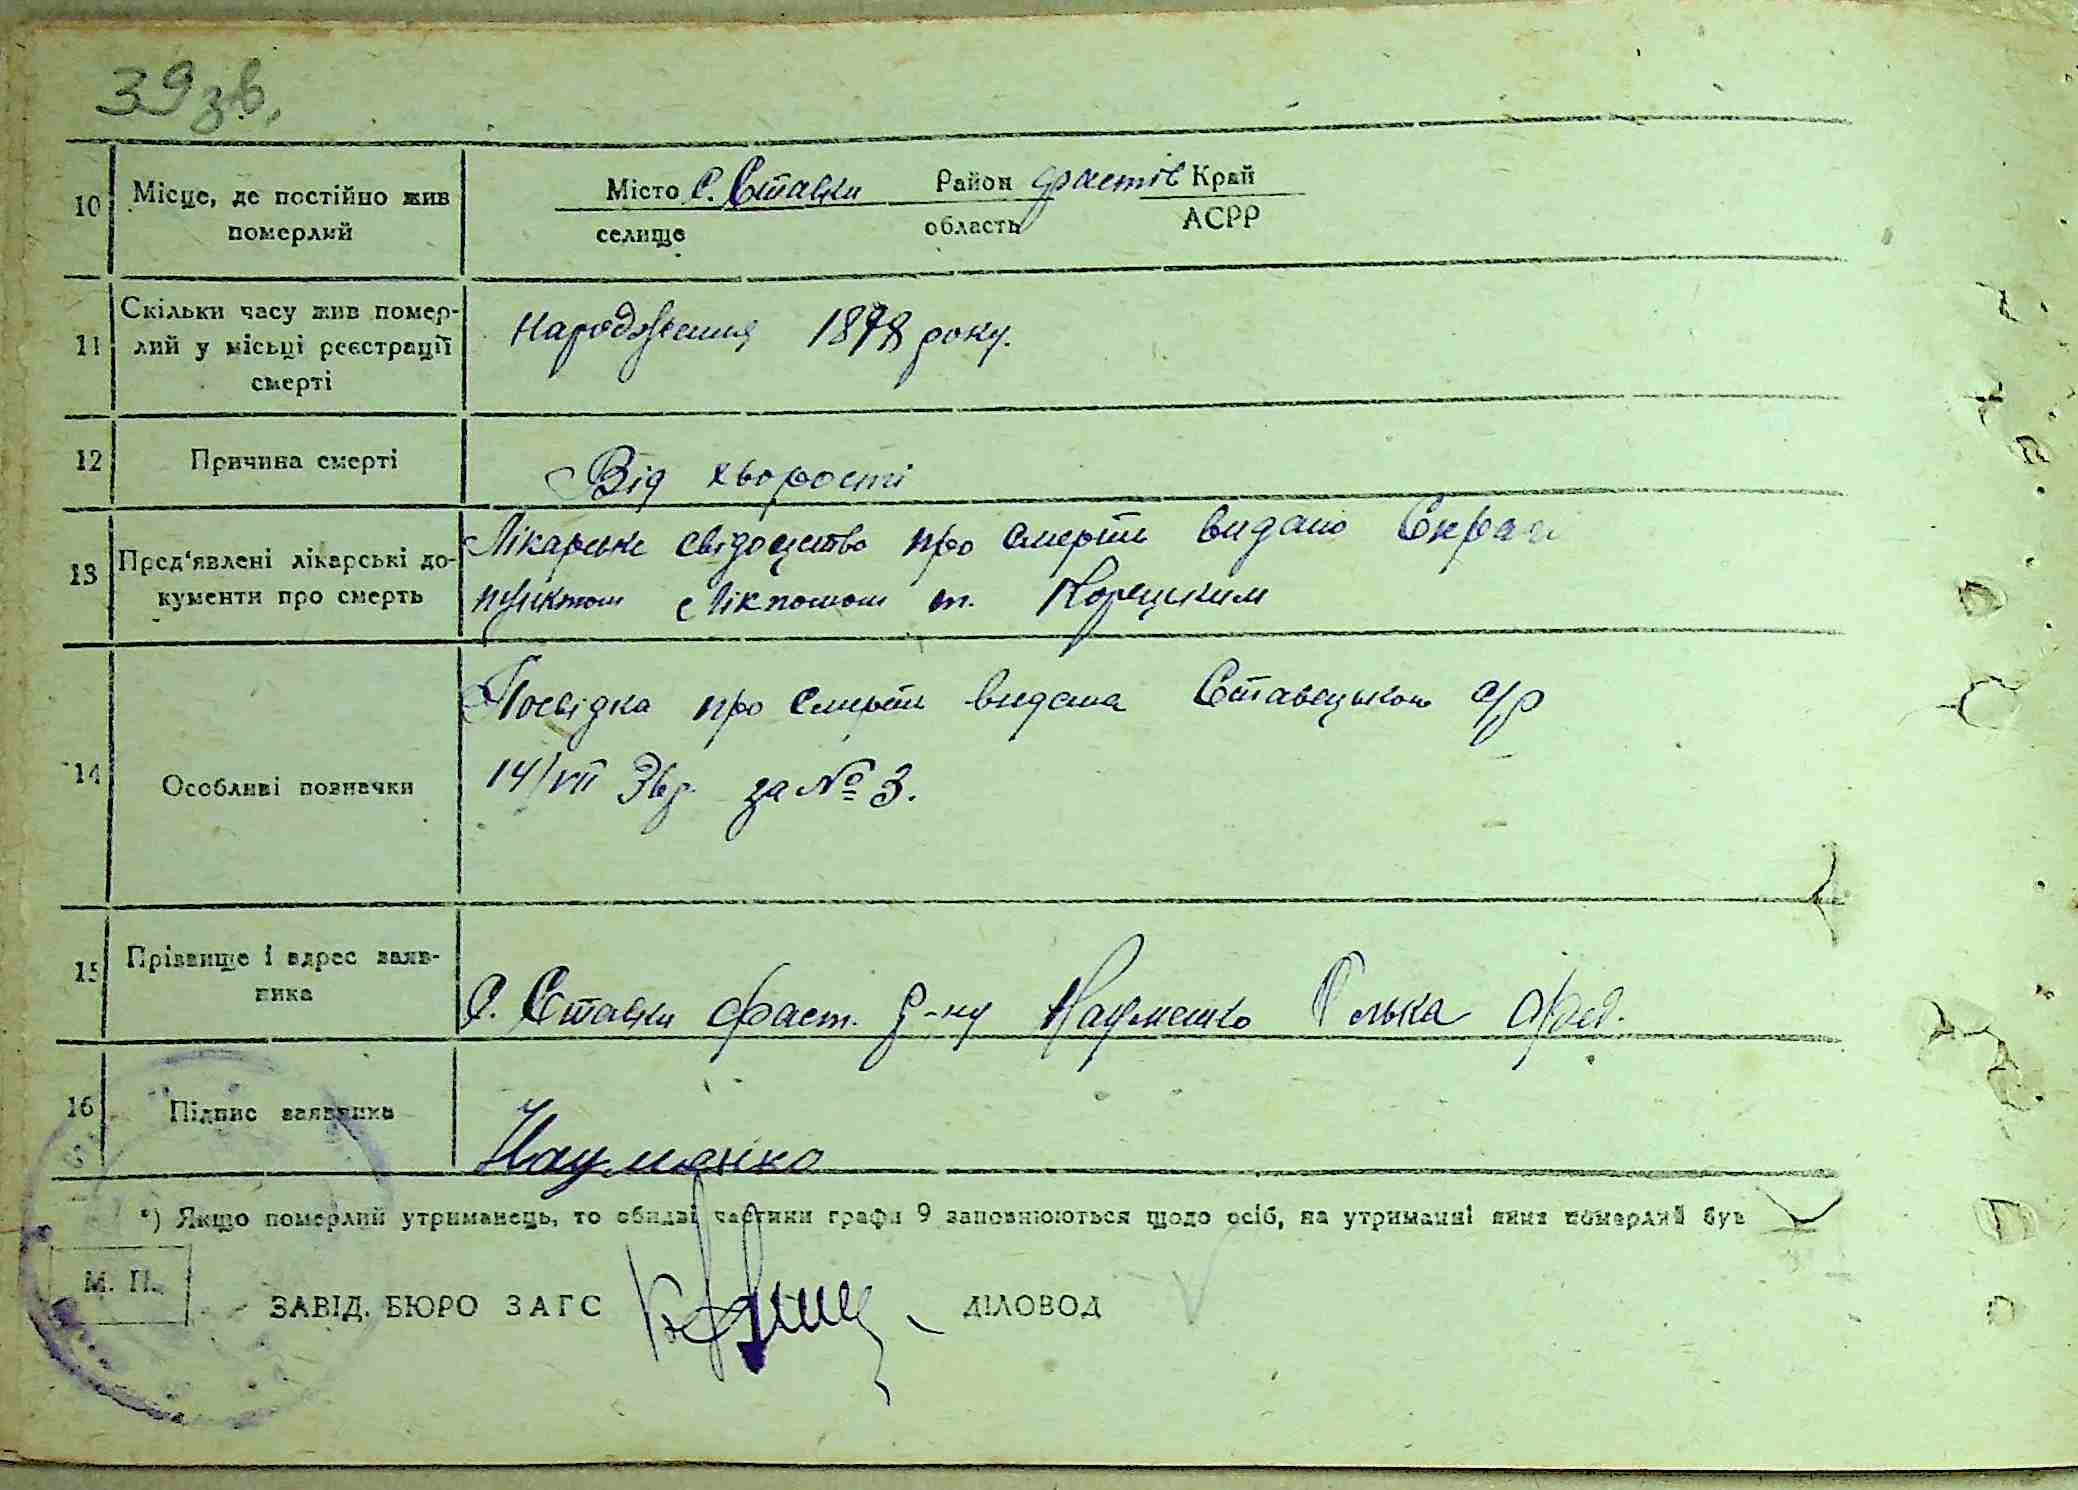 39 зв.
10 Місце, де постійно жив померлий
Місто с. Ставки Район Фастів Край
селище область АСРР
11 Скільки часу жив помер-
лий у місьці реєстрації
смерті
Народження 1878 року.
12 Причина смерті
Від хворости
13 Пред'явлені лікарські до-
кументи про смерть
Лікарське свідоцтво про смерть видано
пунктом Лікпомом т. Корецьким
14 Особливі позначки
Посвідка про смерть видана Ставецькою с/р
14/VII 36р. за № 3.
15 Прізвище і адрес заяв-
ника
С. Ставки Фаст. р-ну Науменко Олька
16 Підпис заявника
Науменко
*) Якщо померлий утриманець, то обидві частини графи 9 заповнюються щодо осіб, на утриманні яких померлий був
М. П.
ЗАВІД. БЮРО ЗАГС ДІЛОВОД